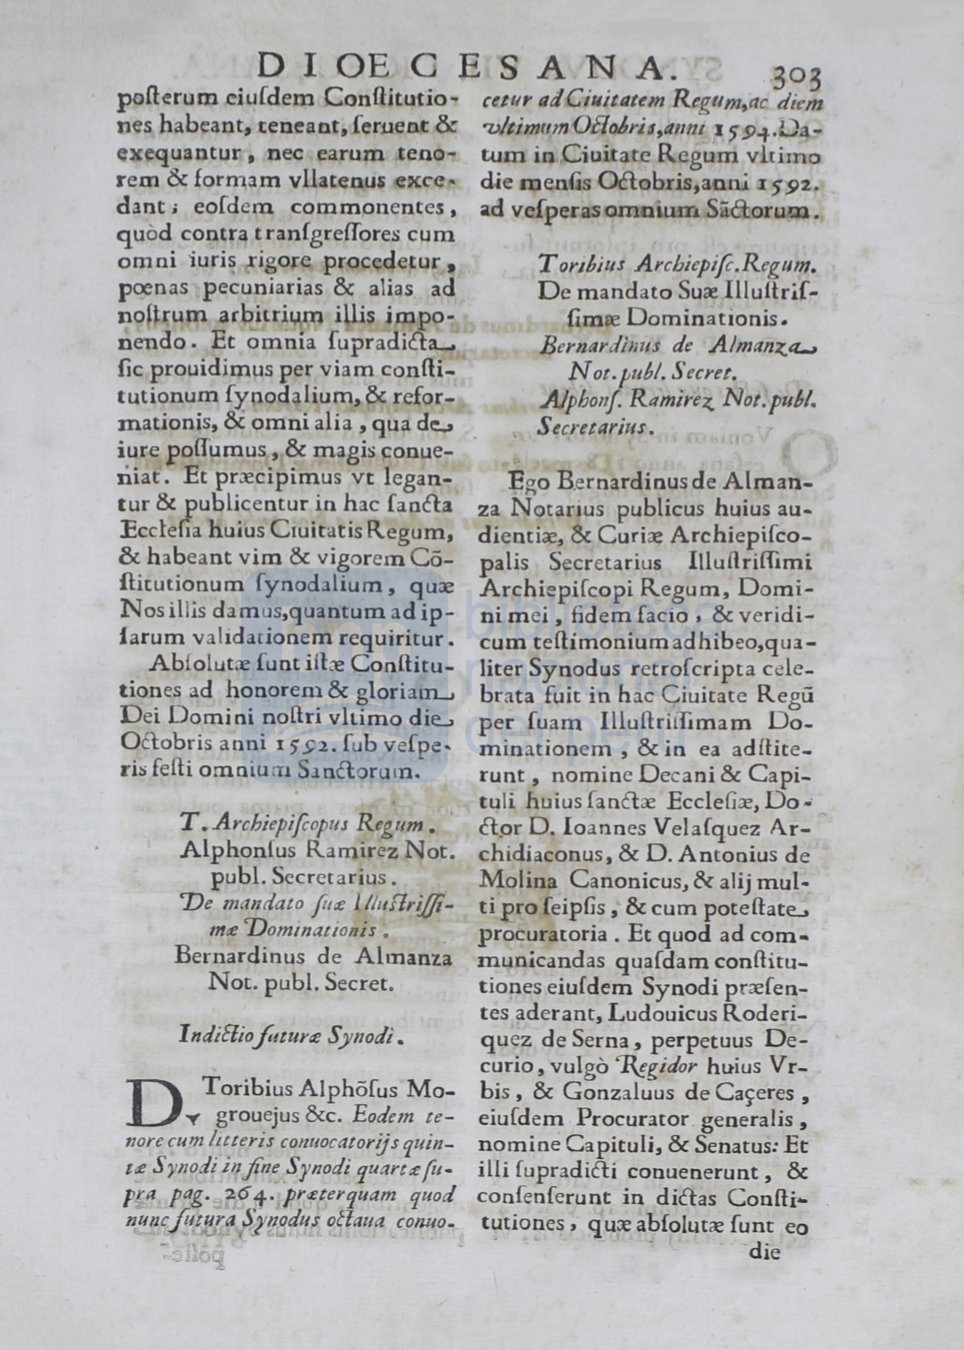 DIOECESANA. 303
poſterum eiuſdem Conſtitutio-
nes habeant, teneant, ſeruent &
exequantur, nec earum teno-
rem & formam vllatenus exce-
dant; eoſdem commonentes,
quòd contra tranſgreſſores cum
omni iuris rigore procedetur,
pœnas pecuniarias & alias ad
noſtrum arbitrium illis impo-
nendo. Et omnia ſupradicta
ſic prouidimus per viam conſti-
tutionum ſynodalium, & refor-
mationis, & omni alia, qua de
iure poſſumus, & magis conue-
niat. Et præcipimus vt legan-
tur & publicentur in hac ſancta
Eccleſia huius Ciuitatis Regum,
& habeant vim & vigorem Cō-
ſtitutionum ſynodalium, quæ
Nos illis damus, quantum ad ip-
ſarum validationem requiritur.
Abſolutæ ſunt iſtæ Conſtitu-
tiones ad honorem & gloriam
Dei Domini noſtri vltimo die
Octobris anni 1592. ſub veſpe-
ris feſti omnium Sanctorum.
T. Archiepiſcopus Regum.
Alphonſus Ramirez Not.
publ. Secretarius.
De mandato ſuæ Illuſtriſſi-
mæ Dominationis.
Bernardinus de Almanza
Not. publ. Secret.
Indictio futuræ Synodi.
D. Toribius Alphōſus Mo-
grouejus &c. Eodem te-
nore cum litteris conuocatorijs quin-
tæ Synodi in fine Synodi quartæ ſu-
pra pag. 264. præterquam quod
nunc futura Synodus octaua conuo-
cetur ad Ciuitatem Regum, ac diem
vltimum Octobris, anni 1594. Da-
tum in Ciuitate Regum vltimo
die menſis Octobris, anni 1592.
ad veſperas omnium Sāctorum.
Toribius Archiepiſc. Regum.
De mandato Suæ Illuſtriſ-
ſimæ Dominationis.
Bernardinus de Almanza
Not. publ. Secret.
Alphonſ. Ramirez Not. publ.
Secretarius.
Ego Bernardinus de Alman-
za Notarius publicus huius au-
dientiæ, & Curiæ Archiepiſco-
palis Secretarius Illuſtriſſimi
Archiepiſcopi Regum, Domi-
ni mei, fidem facio, & veridi-
cum teſtimonium adhibeo, qua-
liter Synodus retroſcripta cele-
brata fuit in hac Ciuitate Regū
per ſuam Illuſtriſſimam Do-
minationem, & in ea adſtite-
runt, nomine Decani & Capi-
tuli huius ſanctæ Eccleſiæ, Do-
ctor D. Ioannes Velaſquez Ar-
chidiaconus, & D. Antonius de
Molina Canonicus, & alij mul-
ti pro ſeipſis, & cum poteſtate
procuratoria. Et quod ad com-
municandas quaſdam conſtitu-
tiones eiuſdem Synodi præſen-
tes aderant, Ludouicus Roderi-
quez de Serna, perpetuus De-
curio, vulgò Regidor huius Vr-
bis, & Gonzaluus de Caçeres,
eiuſdem Procurator generalis,
nomine Capituli, & Senatus: Et
illi ſupradicti conuenerunt, &
conſenſerunt in dictas Conſti-
tutiones, quæ abſolutæ ſunt eo
die